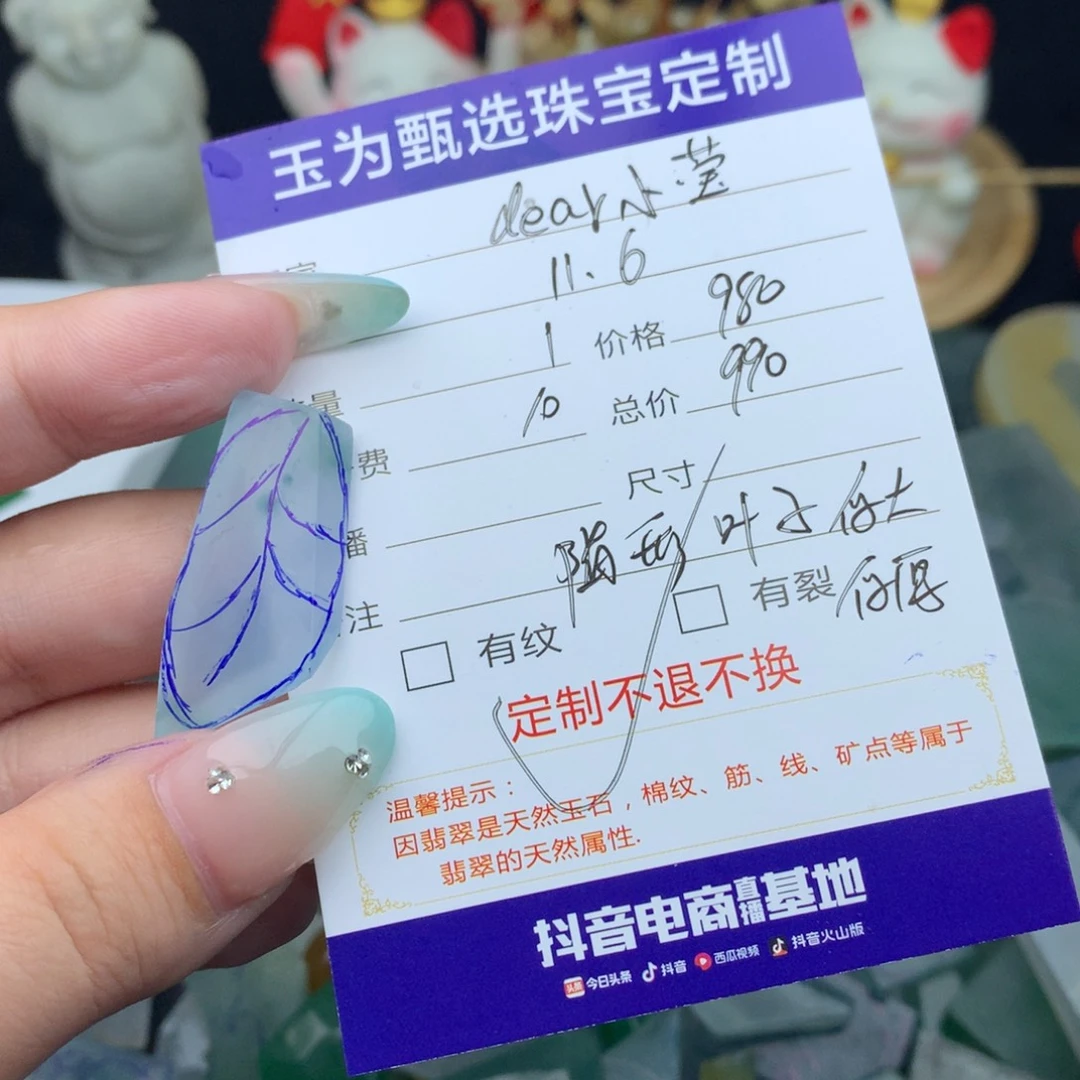 玉为甄选珠宝定制
dear小莹
11.6
量 1 价格 980
费 10 总价 990
播 尺寸
注 随形 叶子 保大
有纹 有裂 保厚
定制不退不换
温馨提示：
因翡翠是天然玉石，棉纹、筋、线、矿点等属于
翡翠的天然属性.
抖音电商直播基地
头条 今日头条 抖音 西瓜视频 抖音火山版